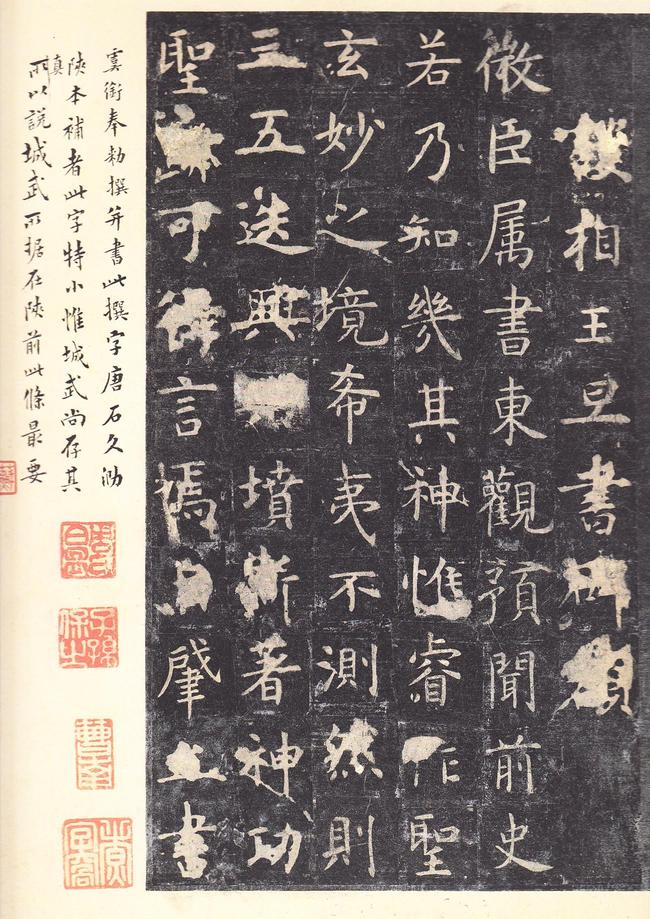 護相王旦書碑額
微臣属書東觀預聞前史
若乃知幾其神惟睿作聖
玄妙之境希夷不測然則
三五迭興墳斯著神功
聖迹可得言焉自肇立書
虞銜奉勅撰并書此撰字唐石久泐
陝本補者此字特小惟城武尚存其真
所以說城武所据在陝前此條最要
子孫保之